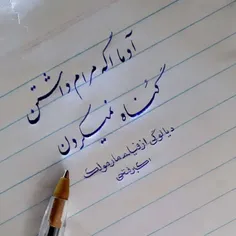 آدما اگه مرام داشتن
گناه نمیکردن
دیالوگی از فیلم مارمولک